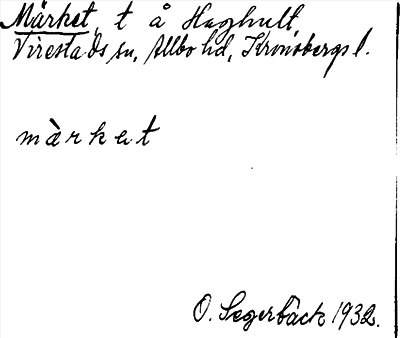 Märket, t å Haghult,
Virestads sn, Allbo hd, Kronobergs l.
màrkat
O. Segerbäck 1932.